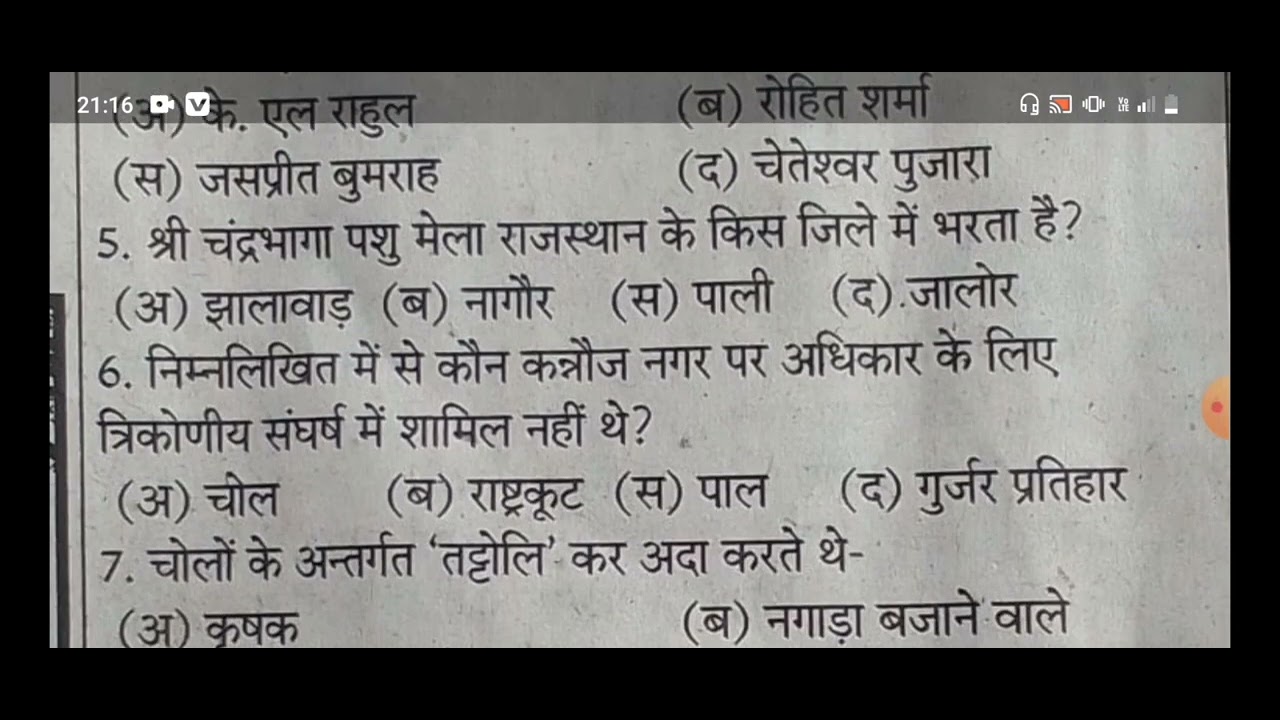 21:16
(अ) के. एल राहुल (ब) रोहित शर्मा
(स) जसप्रीत बुमराह (द) चेतेश्वर पुजारा
5. श्री चंद्रभागा पशु मेला राजस्थान के किस जिले में भरता है?
(अ) झालावाड़ (ब) नागौर (स) पाली (द) जालोर
6. निम्नलिखित में से कौन कन्नौज नगर पर अधिकार के लिए
त्रिकोणीय संघर्ष में शामिल नहीं थे?
(अ) चोल (ब) राष्ट्रकूट (स) पाल (द) गुर्जर प्रतिहार
7. चोलों के अन्तर्गत ‘तट्टोलि’ कर अदा करते थे-
(अ) कृषक (ब) नगाड़ा बजाने वाले